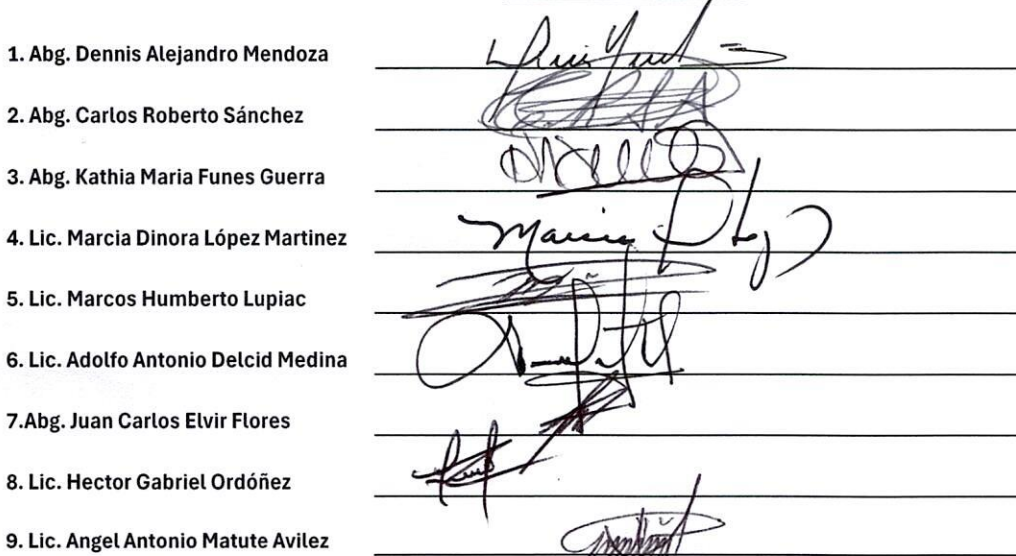 1. Abg. Dennis Alejandro Mendoza
2. Abg. Carlos Roberto Sánchez
3. Abg. Kathia Maria Funes Guerra
4. Lic. Marcia Dinora López Martinez
5. Lic. Marcos Humberto Lupiac
6. Lic. Adolfo Antonio Delcid Medina
7.Abg. Juan Carlos Elvir Flores
8. Lic. Hector Gabriel Ordóñez
9. Lic. Angel Antonio Matute Avilez